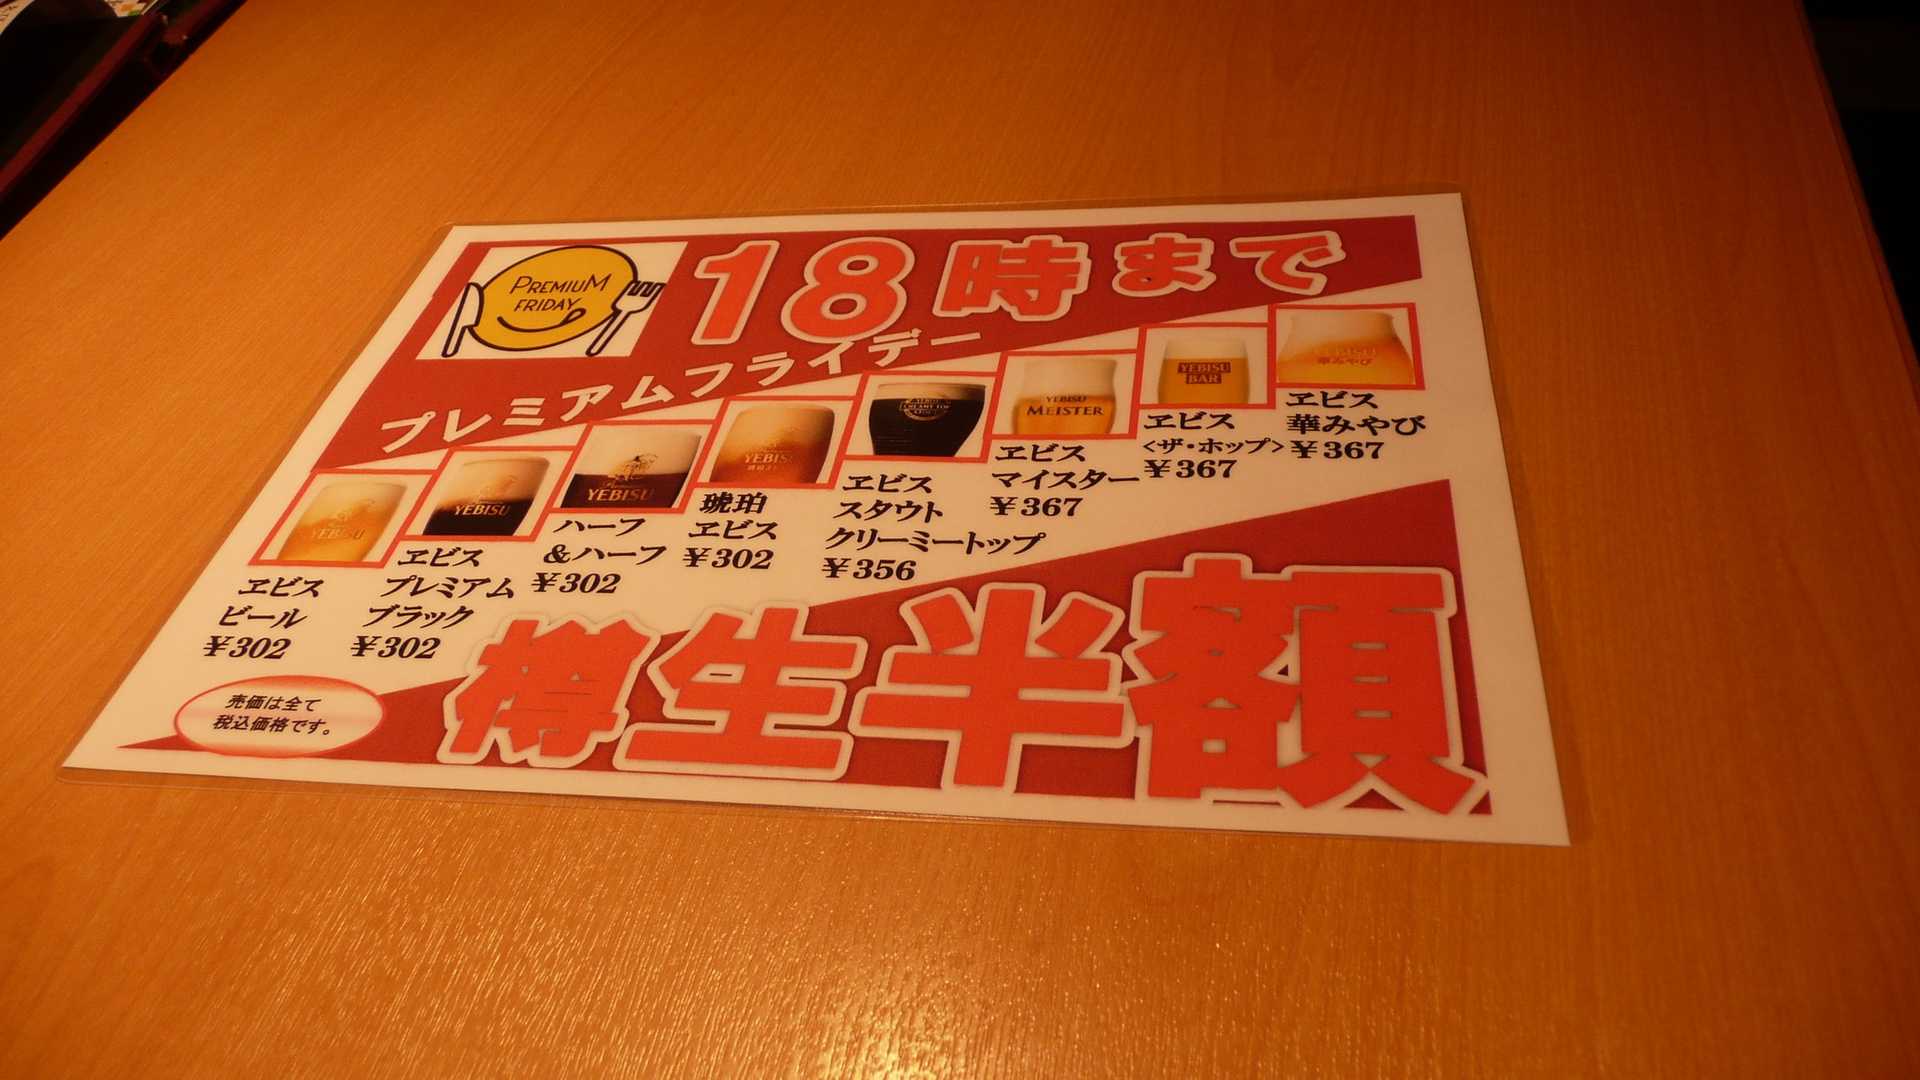 PREMIUM
FRIDAY
18時まで
プレミアムフライデー
YEBISU
ヱビス
ビール
¥302
YEBISU
ヱビス
プレミアム
ブラック
¥302
YEBISU
ハーフ
&ハーフ
¥302
YEBISU
琥珀
ヱビス
¥302
ヱビス
スタウト
クリーミートップ
¥356
YEBISU
MEISTER
ヱビス
マイスター
¥367
YEBISU
BAR
ヱビス
<ザ・ホップ>
¥367
YEBISU
華みやび
ヱビス
華みやび
¥367
樽生半額
売価は全て
税込価格です。